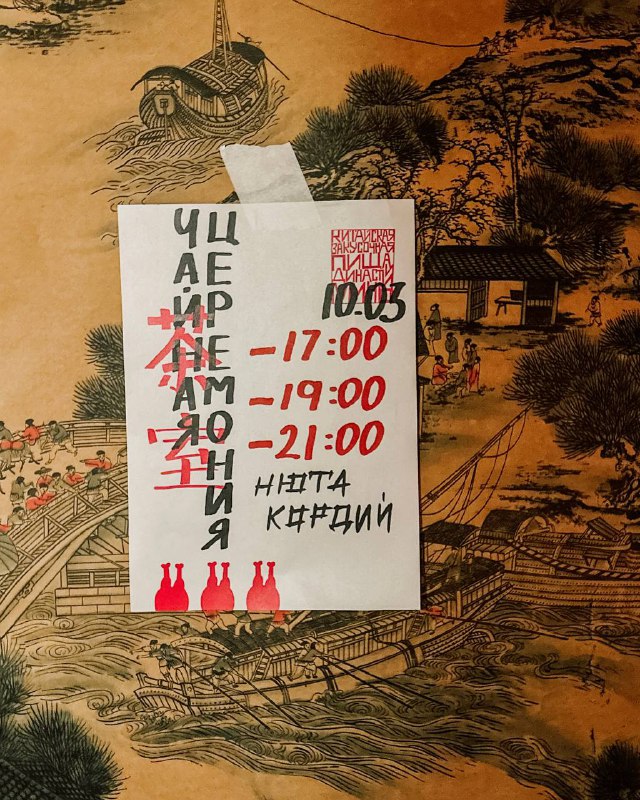 ЧАЙНАЯ
ЦЕРЕМОНИЯ
茶室
КИТАЙСКАЯ
ЗАКУСОЧНАЯ
ПИЩА
ДИНАСТИ
10.03
–17:00
–19:00
–21:00
НЮТА
КОРДИЙ